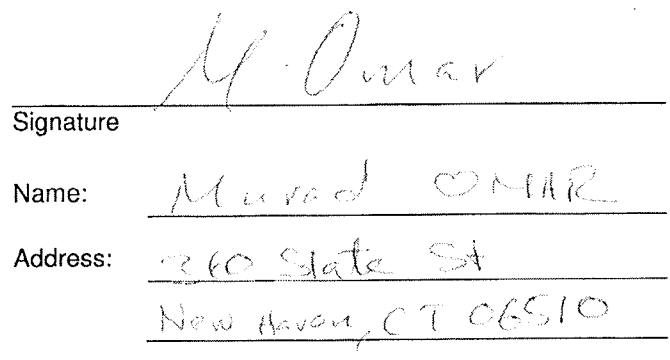 M. Omar
Signature
Name: Murad OMAR
Address: 360 State St
New Haven, CT 06510